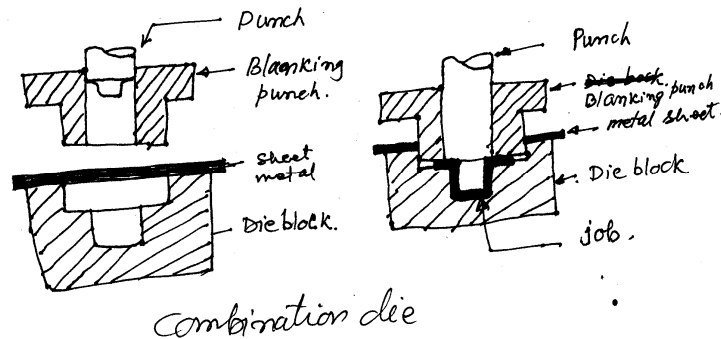 Punch
Blanking
punch.
sheet
metal
Die block.
Punch
Die bock.
Blanking punch
metal sheet.
Die block
job.
Combination die